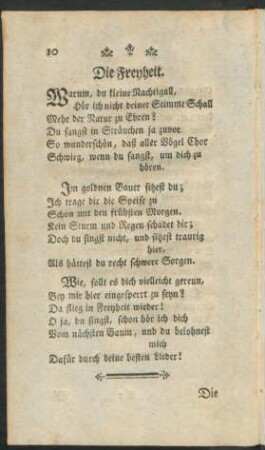 10
Die Freyheit.
Warum, du kleine Nachtigall,
Hör ich nicht deiner Stimme Schall
Mehr der Natur zu Ehren?
Du sangst in Sträuchen ja zuvor
So wunderschön, daß aller Vögel Chor
Schwieg, wenn du sangst, um dich zu
hören.
Im goldnen Bauer sitzest du;
Ich trage dir die Speise zu
Schon mit den frühsten Morgen.
Kein Sturm und Regen schadet dir;
Doch du singst nicht, und sitzest traurig
hier,
Als hättest du recht schwere Sorgen.
Wie, sollt es dich vielleicht gereun,
Bey mir hier eingesperrt zu seyn?
Da flieg in Freyheit wieder!
O ja, du singst, schon hör ich dich
Vom nächsten Baum, und du belohnest
mich
Dafür durch deine besten Lieder!
Die